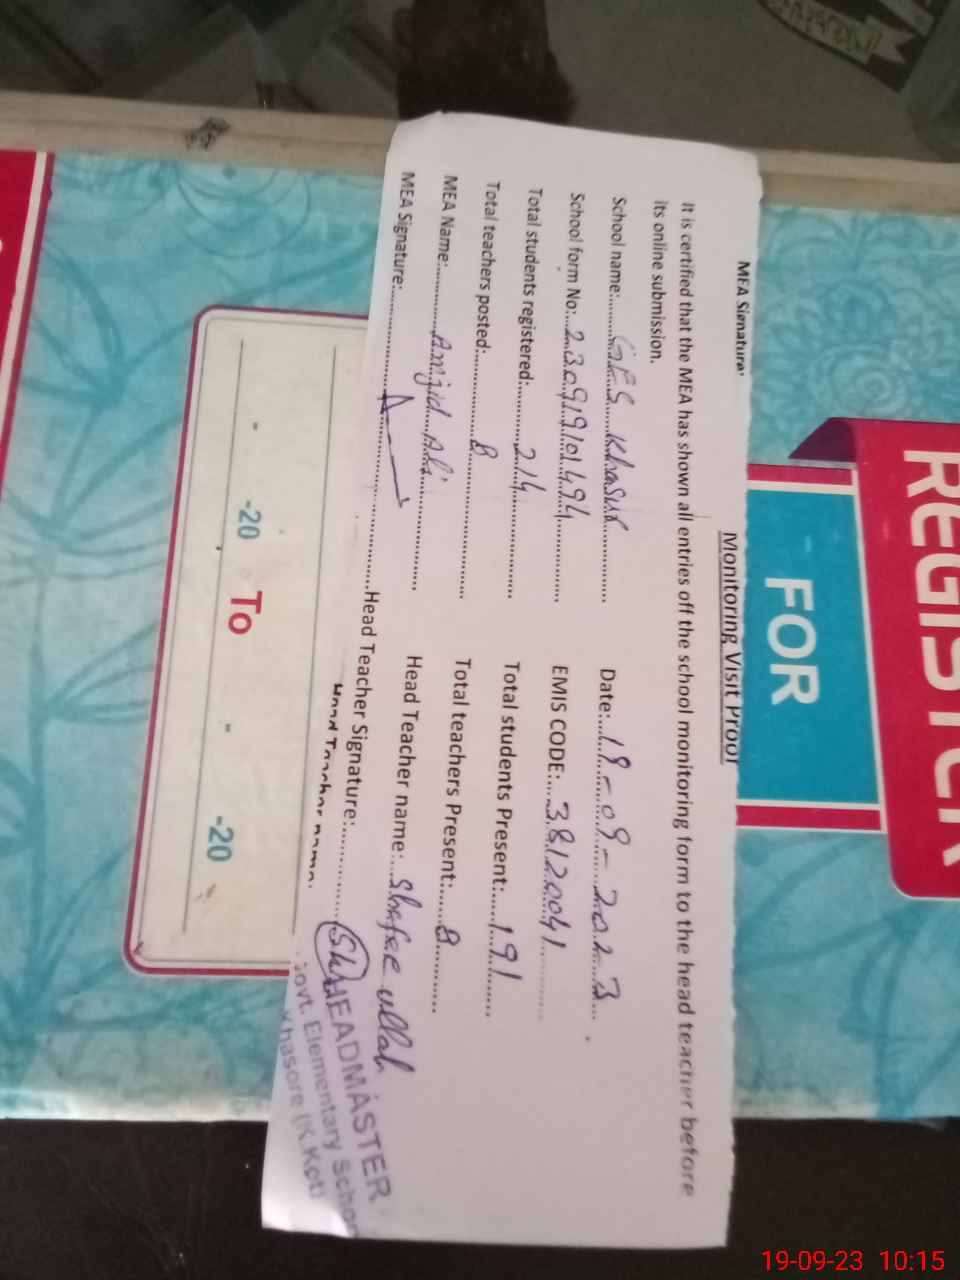 REGISTER
FOR
MEA Signature:
Monitoring Visit Proof
It is certified that the MEA has shown all entries off the school monitoring form to the head teacher before
its online submission.
School name:......GES Khasur............ Date:...19-09-2023...
School form No:...23091910 1494............ EMIS CODE:....38120041............
Total students registered:............214............ Total students Present:......191............
Total teachers posted:............8............ Total teachers Present:......8............
MEA Name:............Amjid Ali............ Head Teacher name:...Shafee ullah
MEA Signature:............Head Teacher Signature:............
Head Teacher name:
HEADMASTER
Govt. Elementary School
Khasore (K.Kot)
- -20 To - -20
19-09-23 10:15